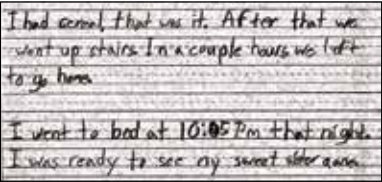 I had cereal, that was it. After that we
went up stairs. In a couple hours we left
to go home.
I went to bed at 10:05 Pm that night.
I was ready to see my sweet sister again.